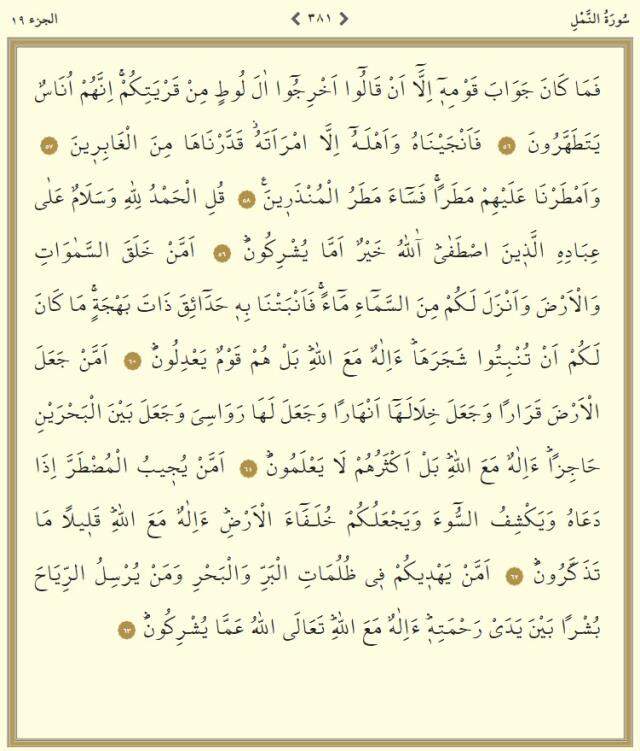 سُورَةُ النَّمْلِ ❮ ٣٨١ ❯ الجزء ١٩
فَمَا كَانَ جَوَابَ قَوْمِهٖٓ اِلَّٓا اَنْ قَالُٓوا اَخْرِجُٓوا اٰلَ لُوطٍ مِنْ قَرْيَتِكُمْۚ اِنَّهُمْ اُنَاسٌ
يَتَطَهَّرُونَ ٥٦ فَاَنْجَيْنَاهُ وَاَهْلَهُٓ اِلَّا امْرَاَتَهُۘ قَدَّرْنَاهَا مِنَ الْغَابِرٖينَ ٥٧
وَاَمْطَرْنَا عَلَيْهِمْ مَطَرًاۚ فَسَٓاءَ مَطَرُ الْمُنْذَرٖينَࣖ ٥٨ قُلِ الْحَمْدُ لِلّٰهِ وَسَلَامٌ عَلٰى
عِبَادِهِ الَّذٖينَ اصْطَفٰىؕ آٰللّٰهُ خَيْرٌ اَمَّا يُشْرِكُونَؕ ٥٩ اَمَّنْ خَلَقَ السَّمٰوَاتِ
وَالْاَرْضَ وَاَنْزَلَ لَكُمْ مِنَ السَّمَٓاءِ مَٓاءًۚ فَاَنْبَتْنَا بِهٖ حَدَٓائِقَ ذَاتَ بَهْجَةٍۚ مَا كَانَ
لَكُمْ اَنْ تُنْبِتُوا شَجَرَهَاؕ ءَاِلٰهٌ مَعَ اللّٰهِؕ بَلْ هُمْ قَوْمٌ يَعْدِلُونَؕ ٦٠ اَمَّنْ جَعَلَ
الْاَرْضَ قَرَارًا وَجَعَلَ خِلَالَهَٓا اَنْهَارًا وَجَعَلَ لَهَا رَوَاسِىَ وَجَعَلَ بَيْنَ الْبَحْرَيْنِ
حَاجِزًاؕ ءَاِلٰهٌ مَعَ اللّٰهِؕ بَلْ اَكْثَرُهُمْ لَا يَعْلَمُونَؕ ٦١ اَمَّنْ يُجٖيبُ الْمُضْطَرَّ اِذَا
دَعَاهُ وَيَكْشِفُ السُّٓوءَ وَيَجْعَلُكُمْ خُلَفَٓاءَ الْاَرْضِؕ ءَاِلٰهٌ مَعَ اللّٰهِؕ قَلٖيلًا مَا
تَذَكَّرُونَؕ ٦٢ اَمَّنْ يَهْدٖيكُمْ فٖى ظُلُمَاتِ الْبَرِّ وَالْبَحْرِ وَمَنْ يُرْسِلُ الرِّيَاحَ
بُشْرًا بَيْنَ يَدَىْ رَحْمَتِهٖؕ ءَاِلٰهٌ مَعَ اللّٰهِؕ تَعَالَى اللّٰهُ عَمَّا يُشْرِكُونَؕ ٦٣